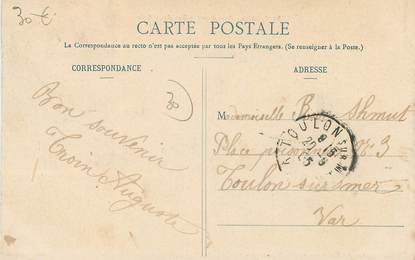 30 €
CARTE POSTALE
La Correspondance au recto n'est pas acceptée par tous les Pays Etrangers. (Se renseigner à la Poste.)
CORRESPONDANCE
ADRESSE
30
Bon souvenir
Troin Auguste
Mademoiselle Shmut
Place N° 3
Toulon sur mer
Var
TOULON SUR MER